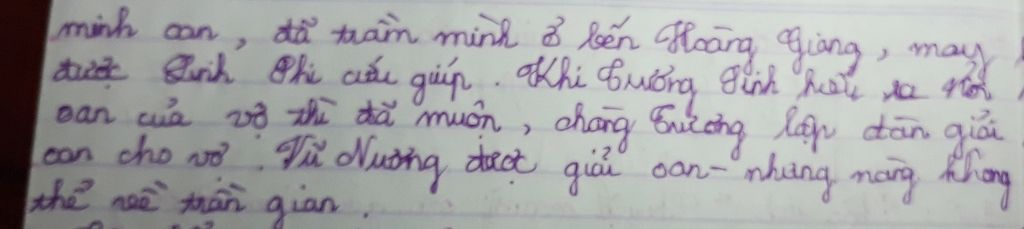 minh oan, đã trầm mình ở bến Hoàng Giang, may
được Linh Phi cứu giúp. Khi Trương Sinh hiểu ra nỗi
oan của vợ thì đã muộn, chàng Trương lập đàn giải
oan cho vợ. Vũ Nương được giải oan - nhưng nàng không
thể về trần gian.